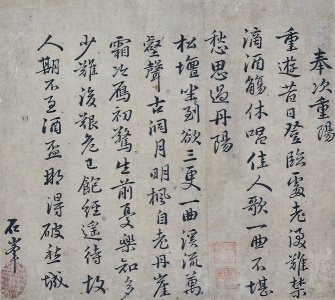 奉次重陽
重遊昔日登臨處老淚難禁
滴酒觴休唱佳人歌一曲不堪
愁思過丹陽
松壇坐到欲三更一曲溪流萬
壑聲古洞月明楓自老丹崖
霜冷雁初驚生前憂樂知多
少難後艱危已飽經遥待故
人期不至酒盃那得破愁城
石峯